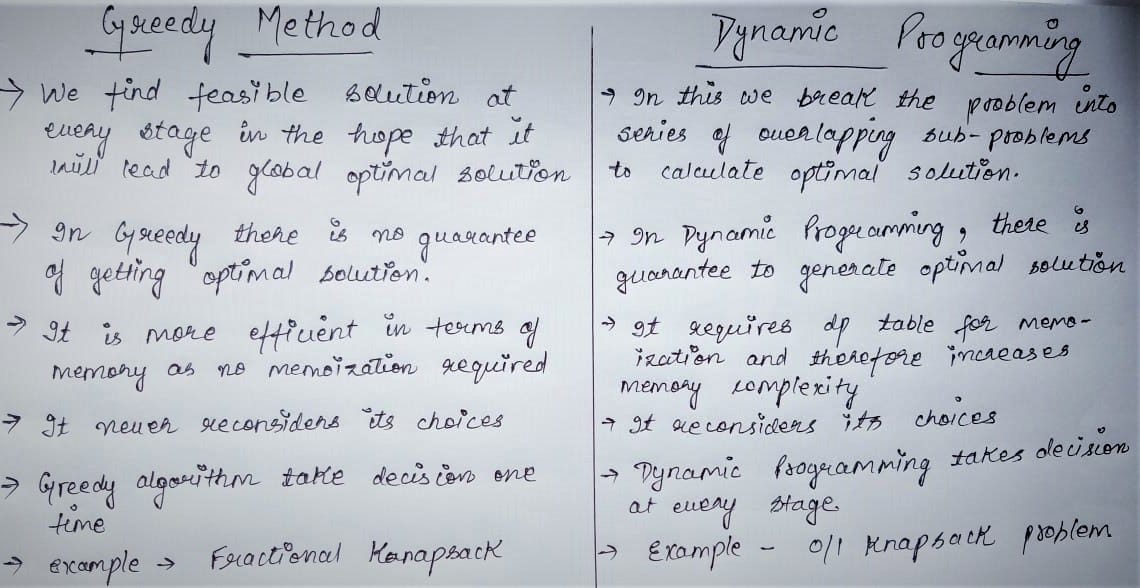 Greedy Method
→ We find feasible solution at
every stage in the hope that it
will lead to global optimal solution
→ In Greedy there is no guarantee
of getting optimal solution.
→ It is more efficient in terms of
memory as no memoization required
→ It never reconsiders its choices
→ Greedy algorithm take decision one
time
→ example → Fractional Kanapsack
Dynamic Programming
→ In this we break the problem into
series of overlapping sub-problems
to calculate optimal solution.
→ In Dynamic Programming, there is
guarantee to generate optimal solution
→ It requires dp table for memo-
ization and therefore increases
memory complexity
→ It reconsiders its choices
→ Dynamic Programming takes decision
at every stage
→ Example - 0/1 Knapsack problem